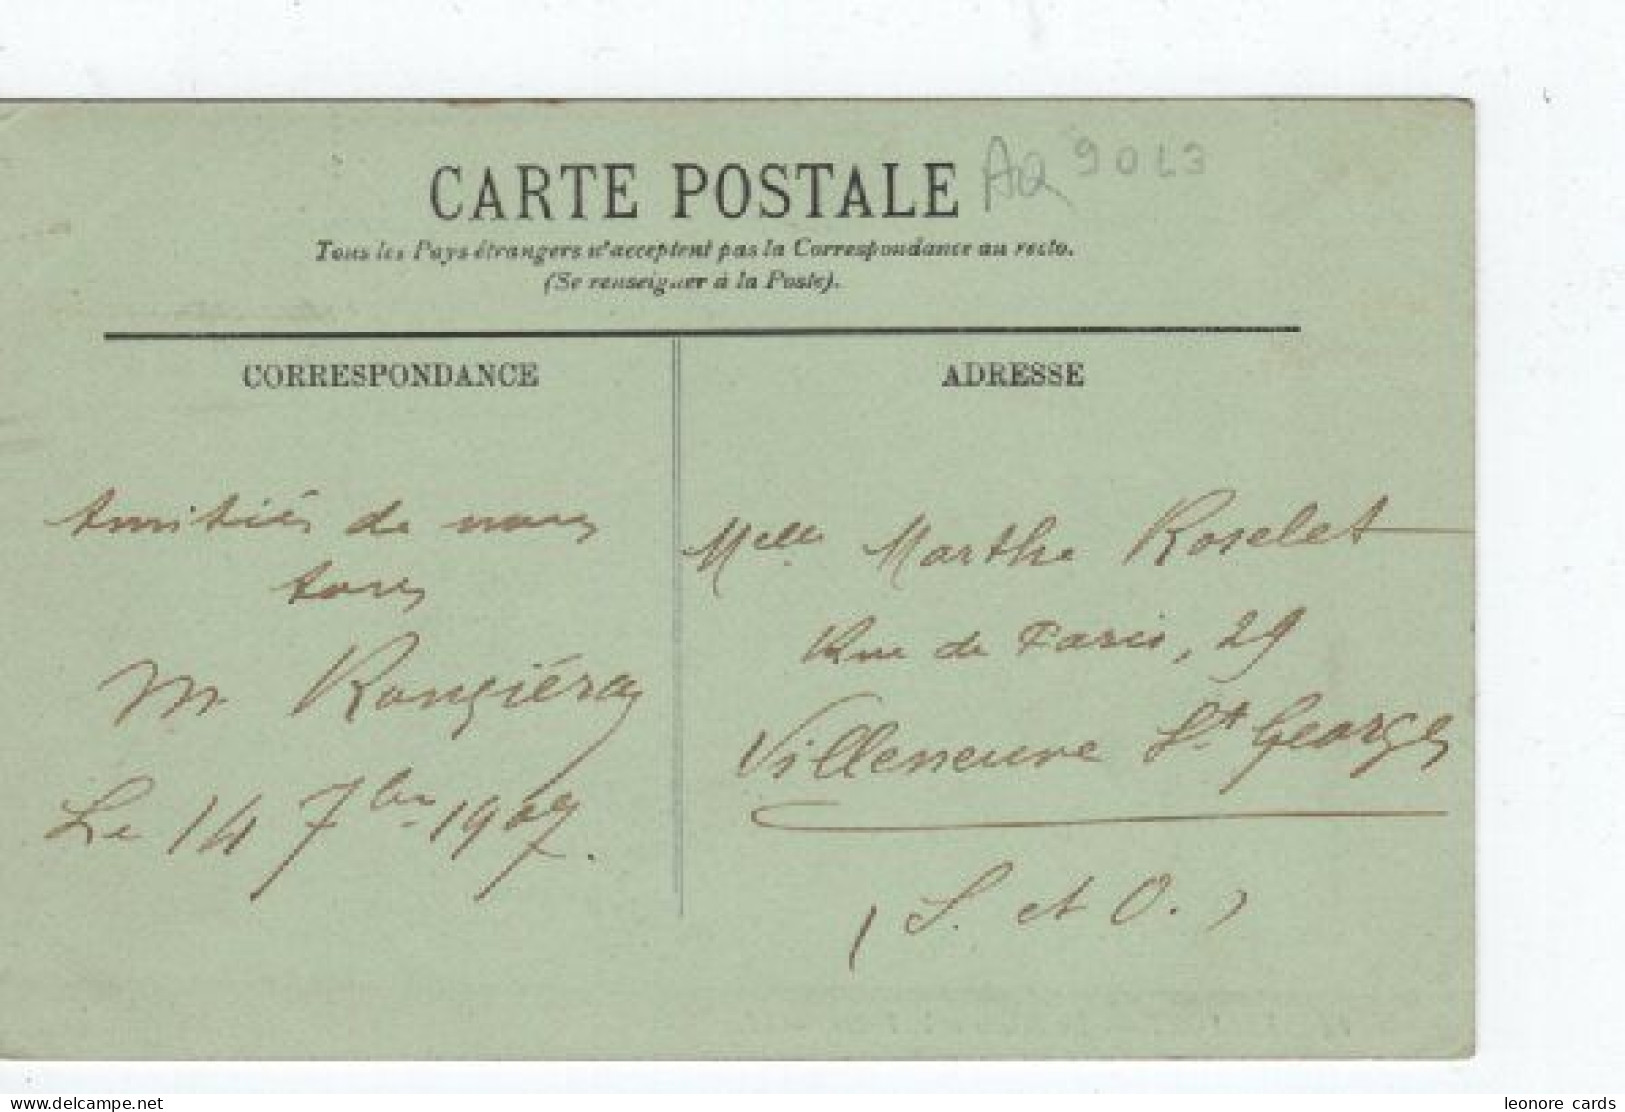 CARTE POSTALE
Tous les Pays étrangers n'acceptent pas la Correspondance au recto.
(Se renseigner à la Poste).
CORRESPONDANCE
Amitiés de nous
tous
M
Le 14 7bre 1907.
ADRESSE
Melle Marthe Roselet
Rue de Paris, 29
Villeneuve St Georges
(S. et O.)
leonore cards